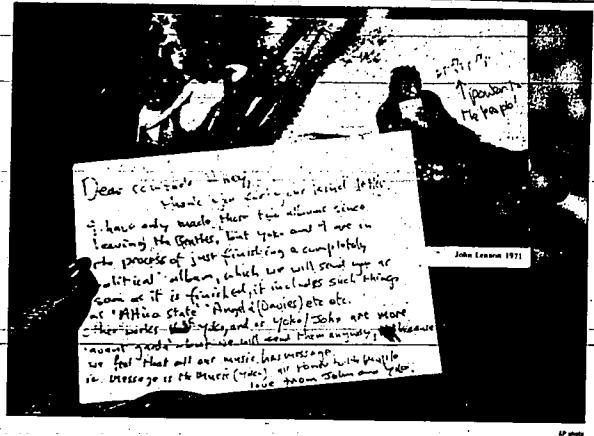 ↑ power to
the people!
John Lennon 1971
Dear
Thank you for your kind letter
I have only made these two albums since
leaving the Beatles, but Yoko and I are in
the process of just finishing a completely
political album, which we will send you as
soon as it is finished, it includes such things
as 'Attica State' Angela (Davies) etc etc.
other works by Yoko, and or Yoko/John are more
'avant garde' but we will send them anyway, because
we feel that all our music has message
ie. message is the Music (Yoko)
love from John and Yoko
AP photo